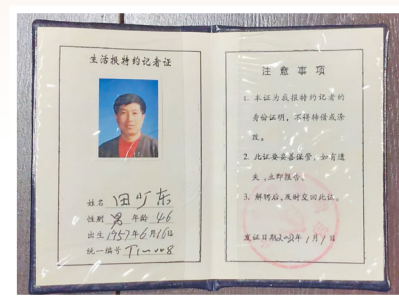 生活报特约记者证
姓名 田少东
性别 男 年龄 46
出生 1957年6月16日
统一编号
注意事项
1. 本证为我报特约记者的
身份证明，不得转借或涂
改。
2. 此证要妥善保管，如有遗
失，立即报告。
3. 解聘后，及时交回此证。
发证日期2002年1月1日